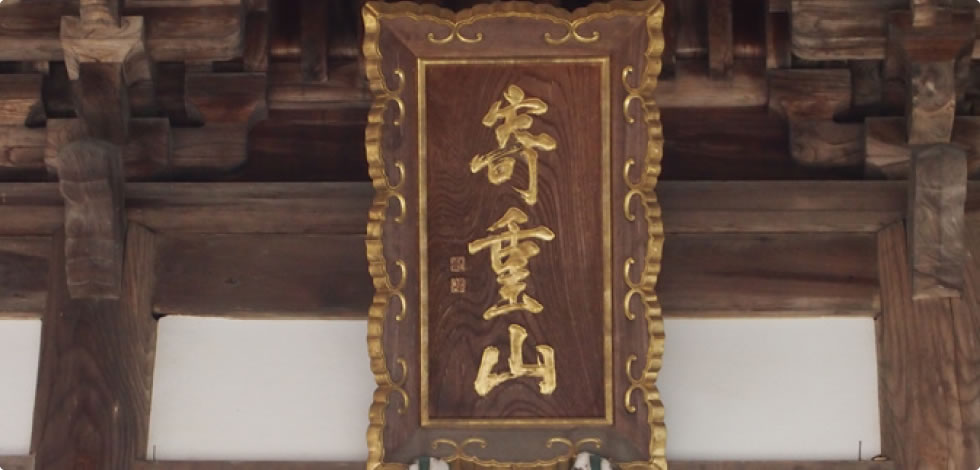 寄重山